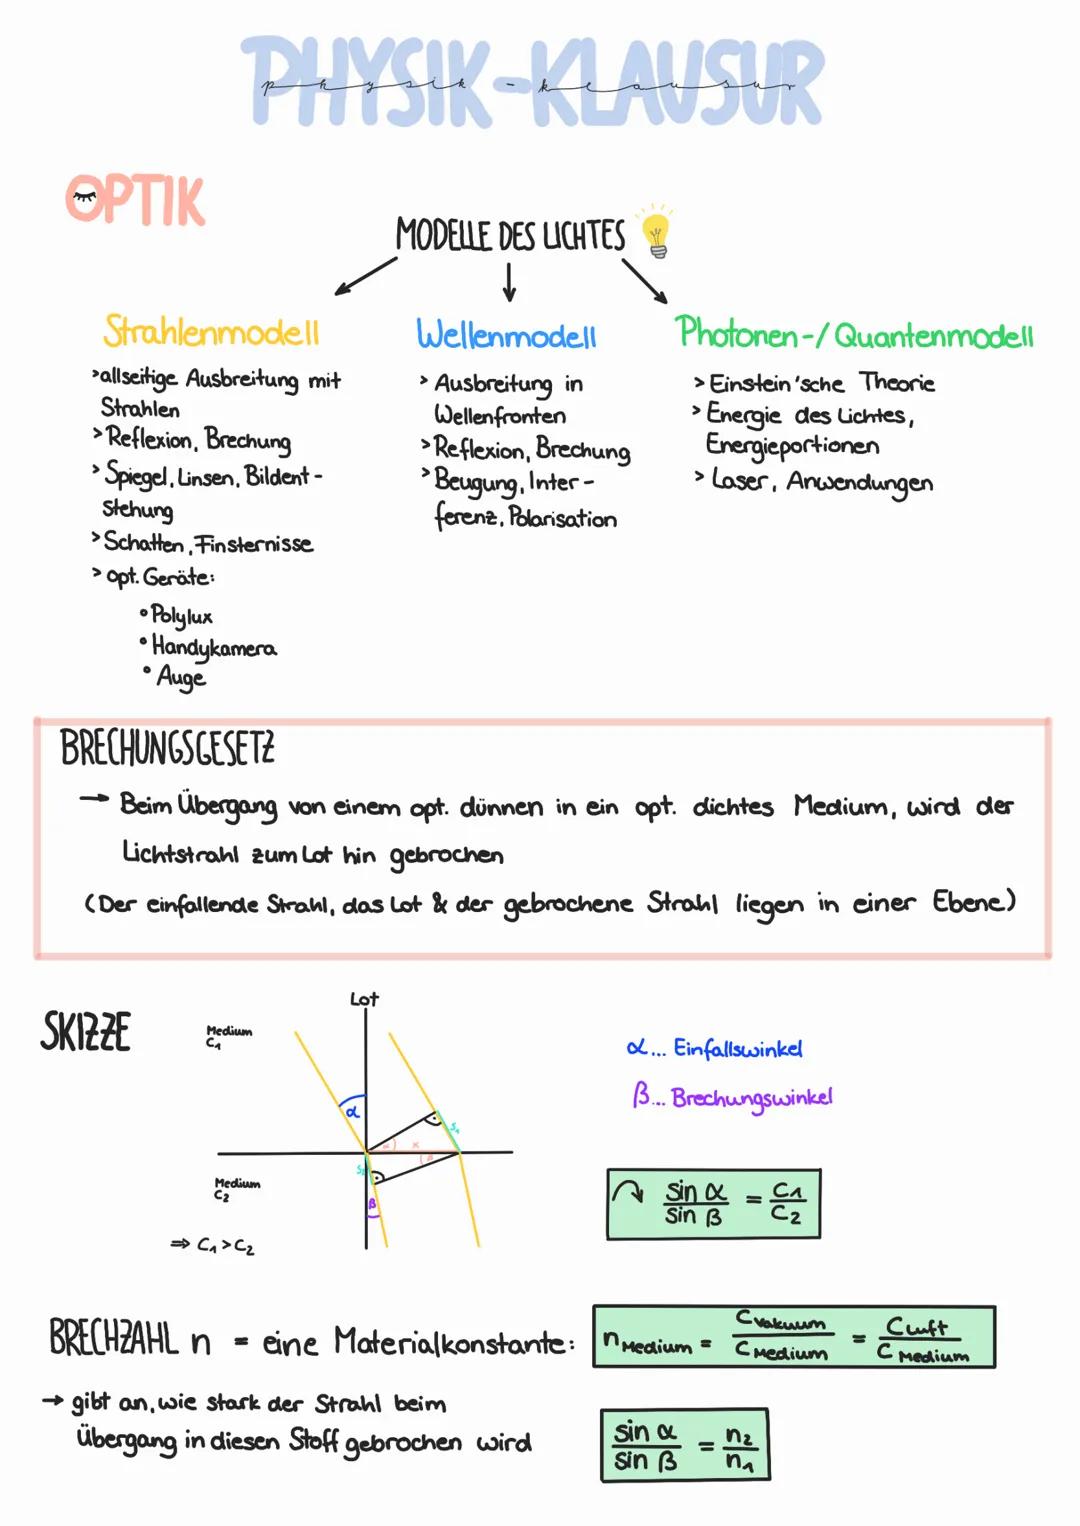 PHYSIK-KLAUSUR
physik-klausur
OPTIK
MODELLE DES LICHTES
Strahlenmodell
>allseitige Ausbreitung mit
Strahlen
>Reflexion, Brechung
>Spiegel, Linsen, Bildent-
stehung
>Schatten, Finsternisse
>opt. Geräte:
•Polylux
•Handykamera
•Auge
Wellenmodell
>Ausbreitung in
Wellenfronten
>Reflexion, Brechung
>Beugung, Inter-
ferenz, Polarisation
Photonen-/Quantenmodell
>Einstein'sche Theorie
>Energie des Lichtes,
Energieportionen
>Laser, Anwendungen
BRECHUNGSGESETZ
→ Beim Übergang von einem opt. dünnen in ein opt. dichtes Medium, wird der
Lichtstrahl zum Lot hin gebrochen
(Der einfallende Strahl, das Lot & der gebrochene Strahl liegen in einer Ebene.)
SKIZZE
Lot
Medium
C₁
α
α
x
β
S₁
S₂
β
Medium
C₂
⇒ C₁>C₂
α... Einfallswinkel
β... Brechungswinkel
sin α / sin β = C₁ / C₂
BRECHZAHL n = eine Materialkonstante:
n Medium = C Vakuum / C Medium = C Luft / C Medium
→ gibt an, wie stark der Strahl beim
Übergang in diesen Stoff gebrochen wird
sin α / sin β = n₂ / n₁